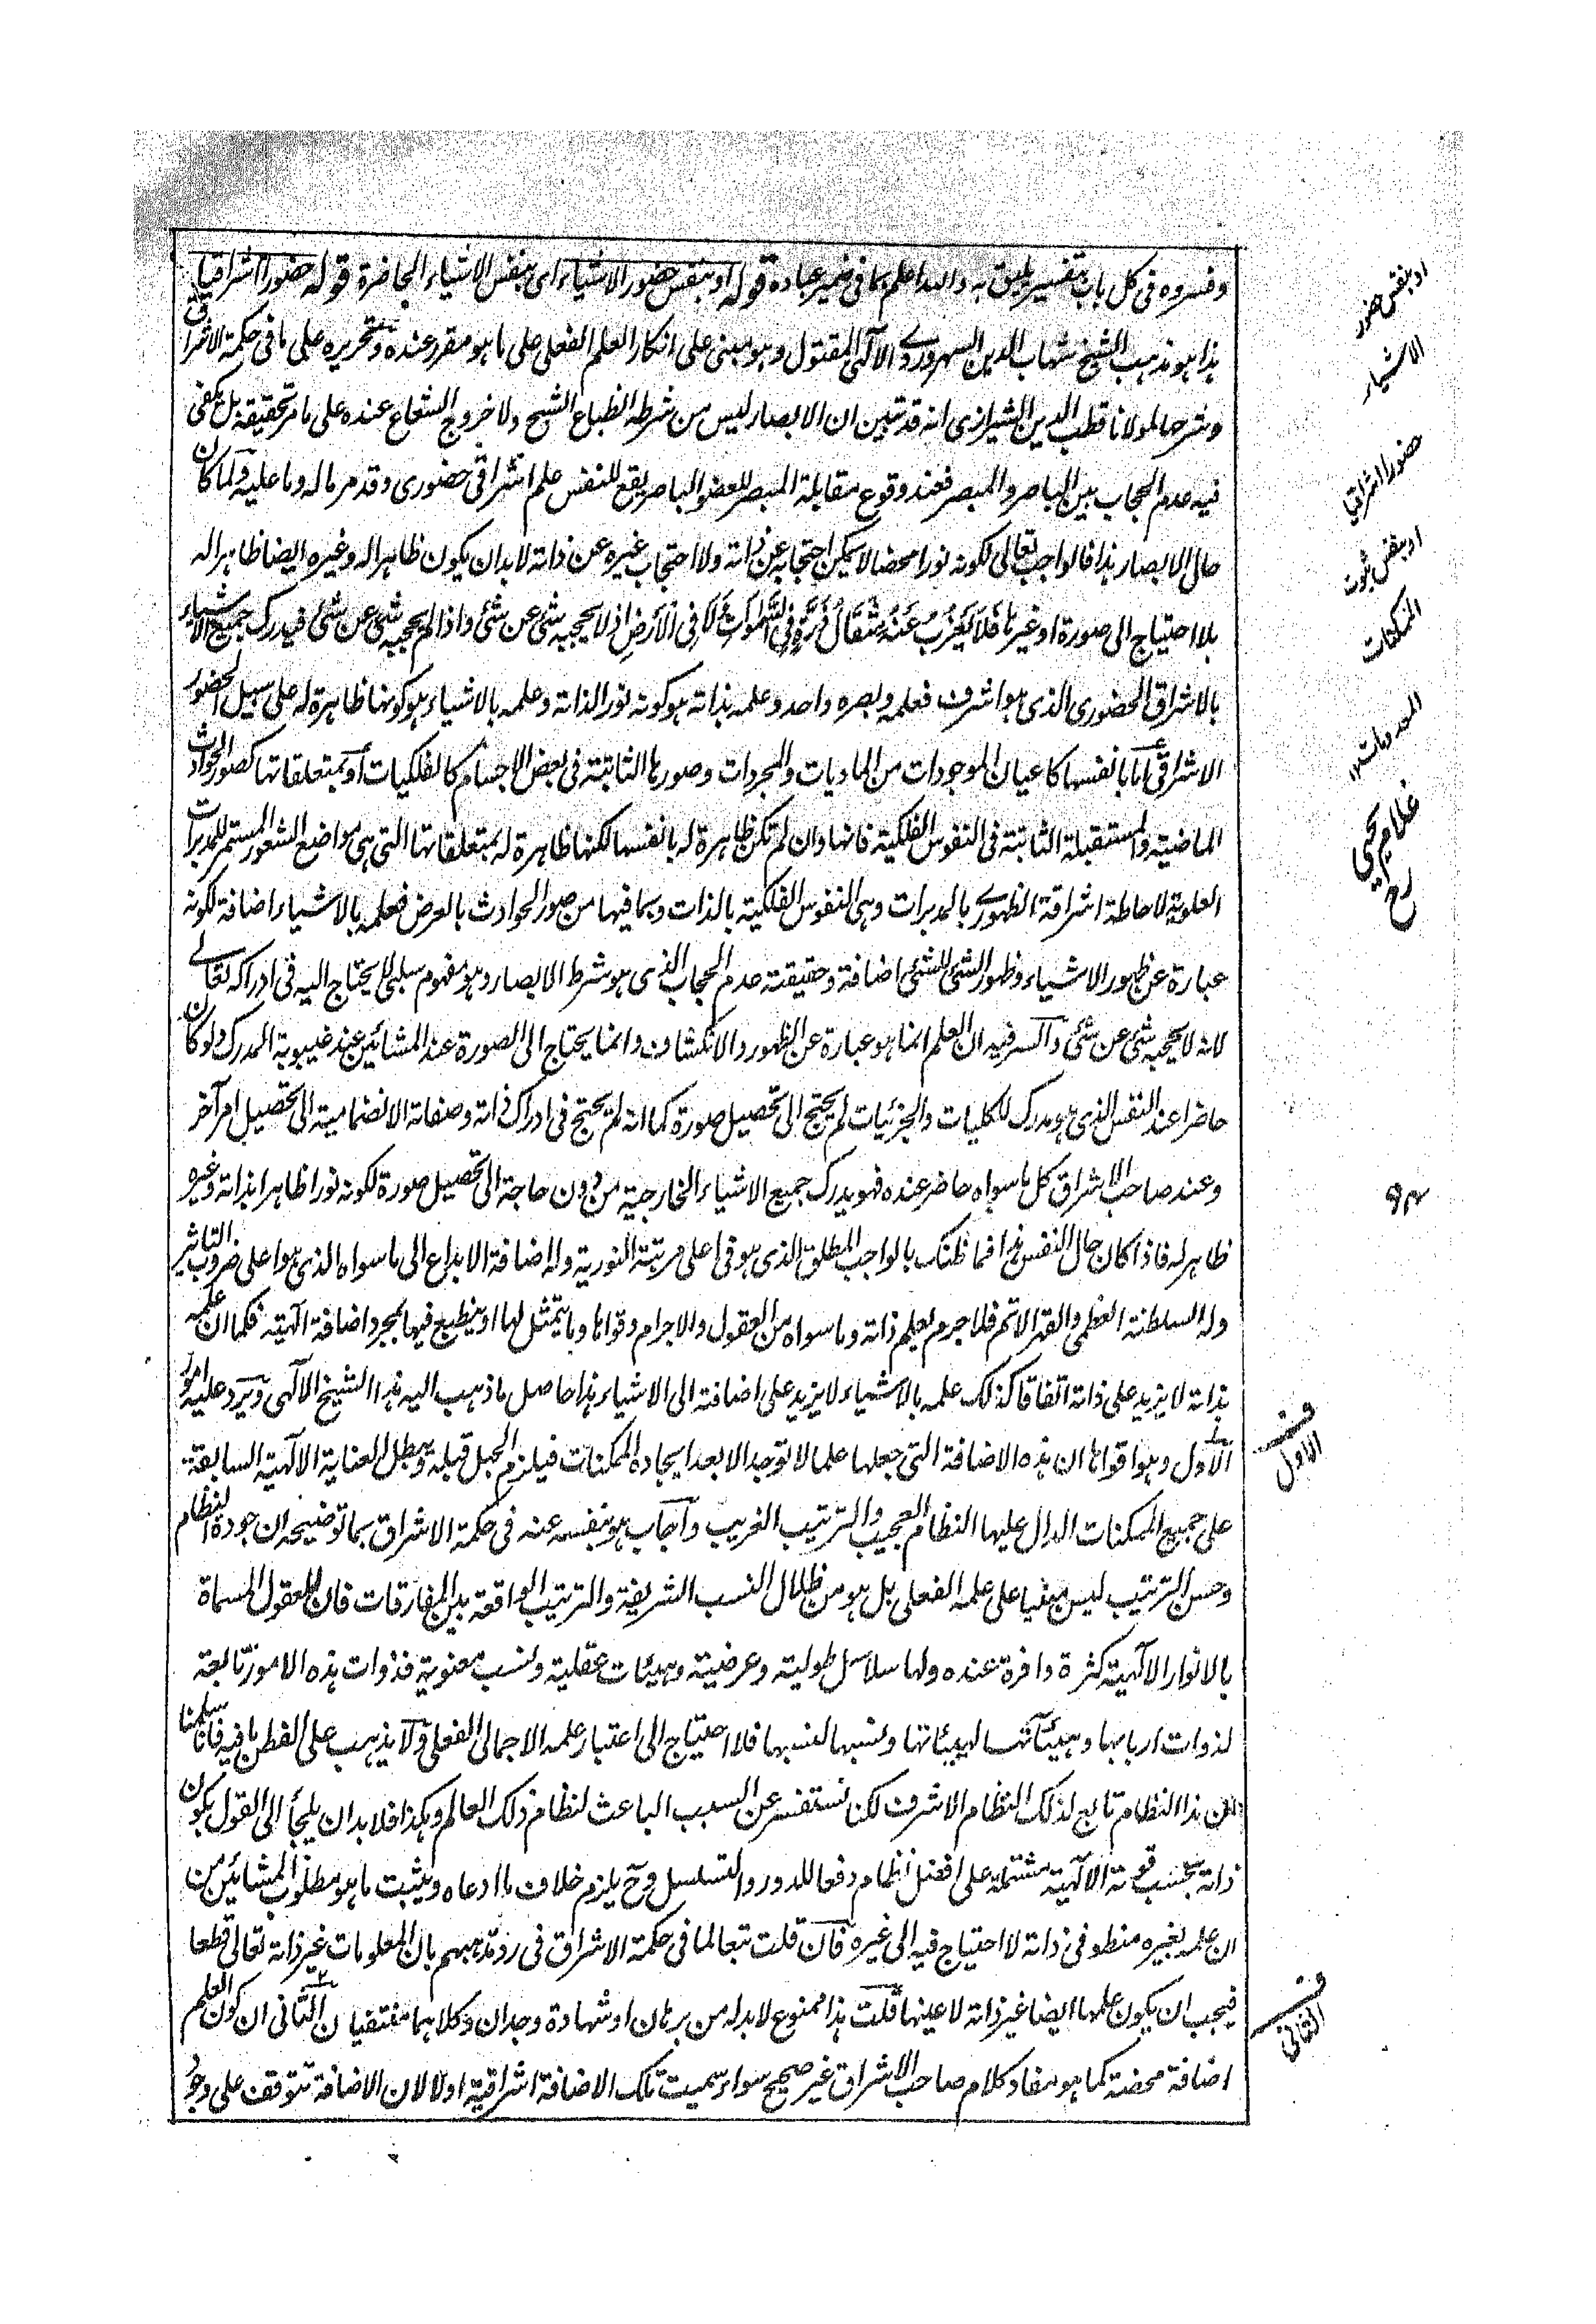 وفسروه في كل باب بتفسير يليق به والله اعلم بما في ضمير عباده قوله او بنفس حضور الاشياء اى بنفس الاشياء الحاضرة قوله حضورا اشراقيا
هذا هو مذهب الشيخ شهاب الدين السهروردي الآلهى المقتول وهو مبنى على انكار العلم الفعلى على ما هو مقرر عنده وتحريره على ما في حكمة الاشراق
وشرحها لمولانا قطب الدين الشيرازى انه قد تبين ان الابصار ليس من شرطه انطباع الشبح ولا خروج الشعاع عنده على ما مر تحقيقه بل يكفى
فيه عدم الحجاب بين الباصر والمبصر فعند وقوع مقابلة المبصر للعضو الباصر يقع للنفس علم اشراقى حضورى وقد مر ماله وما عليه ولما كان
حال الابصار هذا فالواجب تعالى لكونه نورا محضا لا يمكن احتجابه عن ذاته ولا احتجاب غيره عن ذاته لابد ان يكون ظاهرا له وغيره ايضا ظاهرا له
بلا احتياج الى صورة او غيرها فَلَا يَعْزُبُ عَنْهُ مِثْقَالُ ذَرَّةٍ فِي السَّمٰوَاتِ وَلَا فِي الْأَرْضِ اذ لا يحجبه شئ عن شئ واذا لم يحجبه شئ عن شئ فيدرك جميع الاشياء
بالاشراق الحضورى الذى هو اشرف فعلمه وبصره واحد وعلمه بذاته هو كونه نورا لذاته وعلمه بالاشياء هو كونها ظاهرة له على سبيل الحضور
الاشراقى اما بانفسها كاعيان الموجودات من الماديات والمجردات وصورها الثابتة في بعض الاجسام كالفلكيات او بمتعلقاتها كصور الحوادث
الماضية والمستقبلة الثابتة في النفوس الفلكية فانها وان لم تكن ظاهرة له بانفسها لكنها ظاهرة له بمتعلقاتها التى هى مواضع الشعور المستمر للمدبرات
العلوية لاحاطة اشراقة الظهورى بالمدبرات وهى النفوس الفلكية بالذات وبما فيها من صور الحوادث بالعرض فعلمه بالاشياء اضافة لكونه
عبارة عن ظهور الاشياء وظهور الشئ للشئ اضافة وحقيقته عدم الحجاب الذى هو شرط الابصار وهو مفهوم سلبى لا يحتاج اليه في ادراكه تعالى
لانه لا يحجبه شئ عن شئ والسر فيه ان العلم انما هو عبارة عن الظهور والانكشاف وانما يحتاج الى الصورة عند المشائين عند غيبوبة المدرك ولو كان
حاضرا عند النفس الذى هو مدرك للكليات والجزئيات لم يحتج الى تحصيل صورة كما انه لم يحتج في ادراك ذاته وصفاته الانضمامية الى تحصيل امر آخر
وعند صاحب الاشراق كل ما سواه حاضر عنده فهو يدرك جميع الاشياء الخارجية من دون حاجة الى تحصيل صورة لكونه نورا ظاهرا بذاته وغيره
ظاهر له فاذا كان حال النفس هذا فما ظنك بالواجب المطلق الذى هو في اعلى مرتبة النورية وله اضافة الابداع الى ما سواه الذى هو اعلى ضروب التاثير
وله السلطنة العظمى والقهر الاتم فلا جرم يعلم ذاته وما سواه من العقول والاجرام وقواها وما يتمثل لها او ينطبع فيها بمجرد اضافة آلهية فكما ان علمه
بذاته لا يزيد على ذاته اتفاقا كذلك علمه بالاشياء لا يزيد على اضافته الى الاشياء هذا حاصل ما ذهب اليه هذا الشيخ الآلهى ويرد عليه امور
الاول وهو اقواها ان هذه الاضافة التى جعلها علما لا توجد الا بعد ايجاده الممكنات فيلزم الجهل قبله ويبطل العناية الآلهية السابقة
على جميع الممكنات الدال عليها النظام العجيب والترتيب الغريب واجاب هو بنفسه عنه في حكمة الاشراق بما توضيحه ان جودة النظام
وحسن الترتيب ليس مبنيا على علمه الفعلى بل هو من ظلال النسب الشريفة والترتيب الواقعة بين المفارقات فان للعقول المسماة
بالانوار الآلهية كثرة وافرة عنده ولها سلاسل طولية وعرضية وهيئات عقلية ونسب معنوية فذوات هذه الامور تابعة
لذوات اربابها وهيئآتها لهيئاتها ونسبها لنسبها فلا احتياج الى اعتبار علمه الاجمالى الفعلى ولا يذهب على الفطن ما فيه فانا سلمنا
ان هذا النظام تابع لذلك النظام الاشرف لكنا نستفسر عن السبب الباعث لنظام ذلك العالم وهكذا فلابد ان يلجأ الى القول بكون
ذاته بحسب قوته الآلهية مشتملة على افضل نظام دفعا للدور والتسلسل وح يلزم خلاف ما ادعاه ويثبت ما هو مطلوب المشائين من
ان علمه بغيره منطو في ذاته لا احتياج فيه الى غيره فان قلت تبعا لما في حكمة الاشراق في رد مذهبهم بان المعلومات غير ذاته تعالى قطعا
فيجب ان يكون علمها ايضا غير ذاته لا عينها قلت هذا ممنوع لابد له من برهان او شهادة وجدان وكلاهما منتفيان الثانى ان كون العلم
اضافة محضة كما هو مفاد كلام صاحب الاشراق غير صحيح سواء سميت تلك الاضافة اشراقية اولا لان الاضافة تتوقف على وجود
او بنفس حضور
الاشياء
حضورا اشراقيا
او بنفس ثبوت
الممكنات
المعدومات ١٢
غلام يحيى
رح
الاول
الثانى